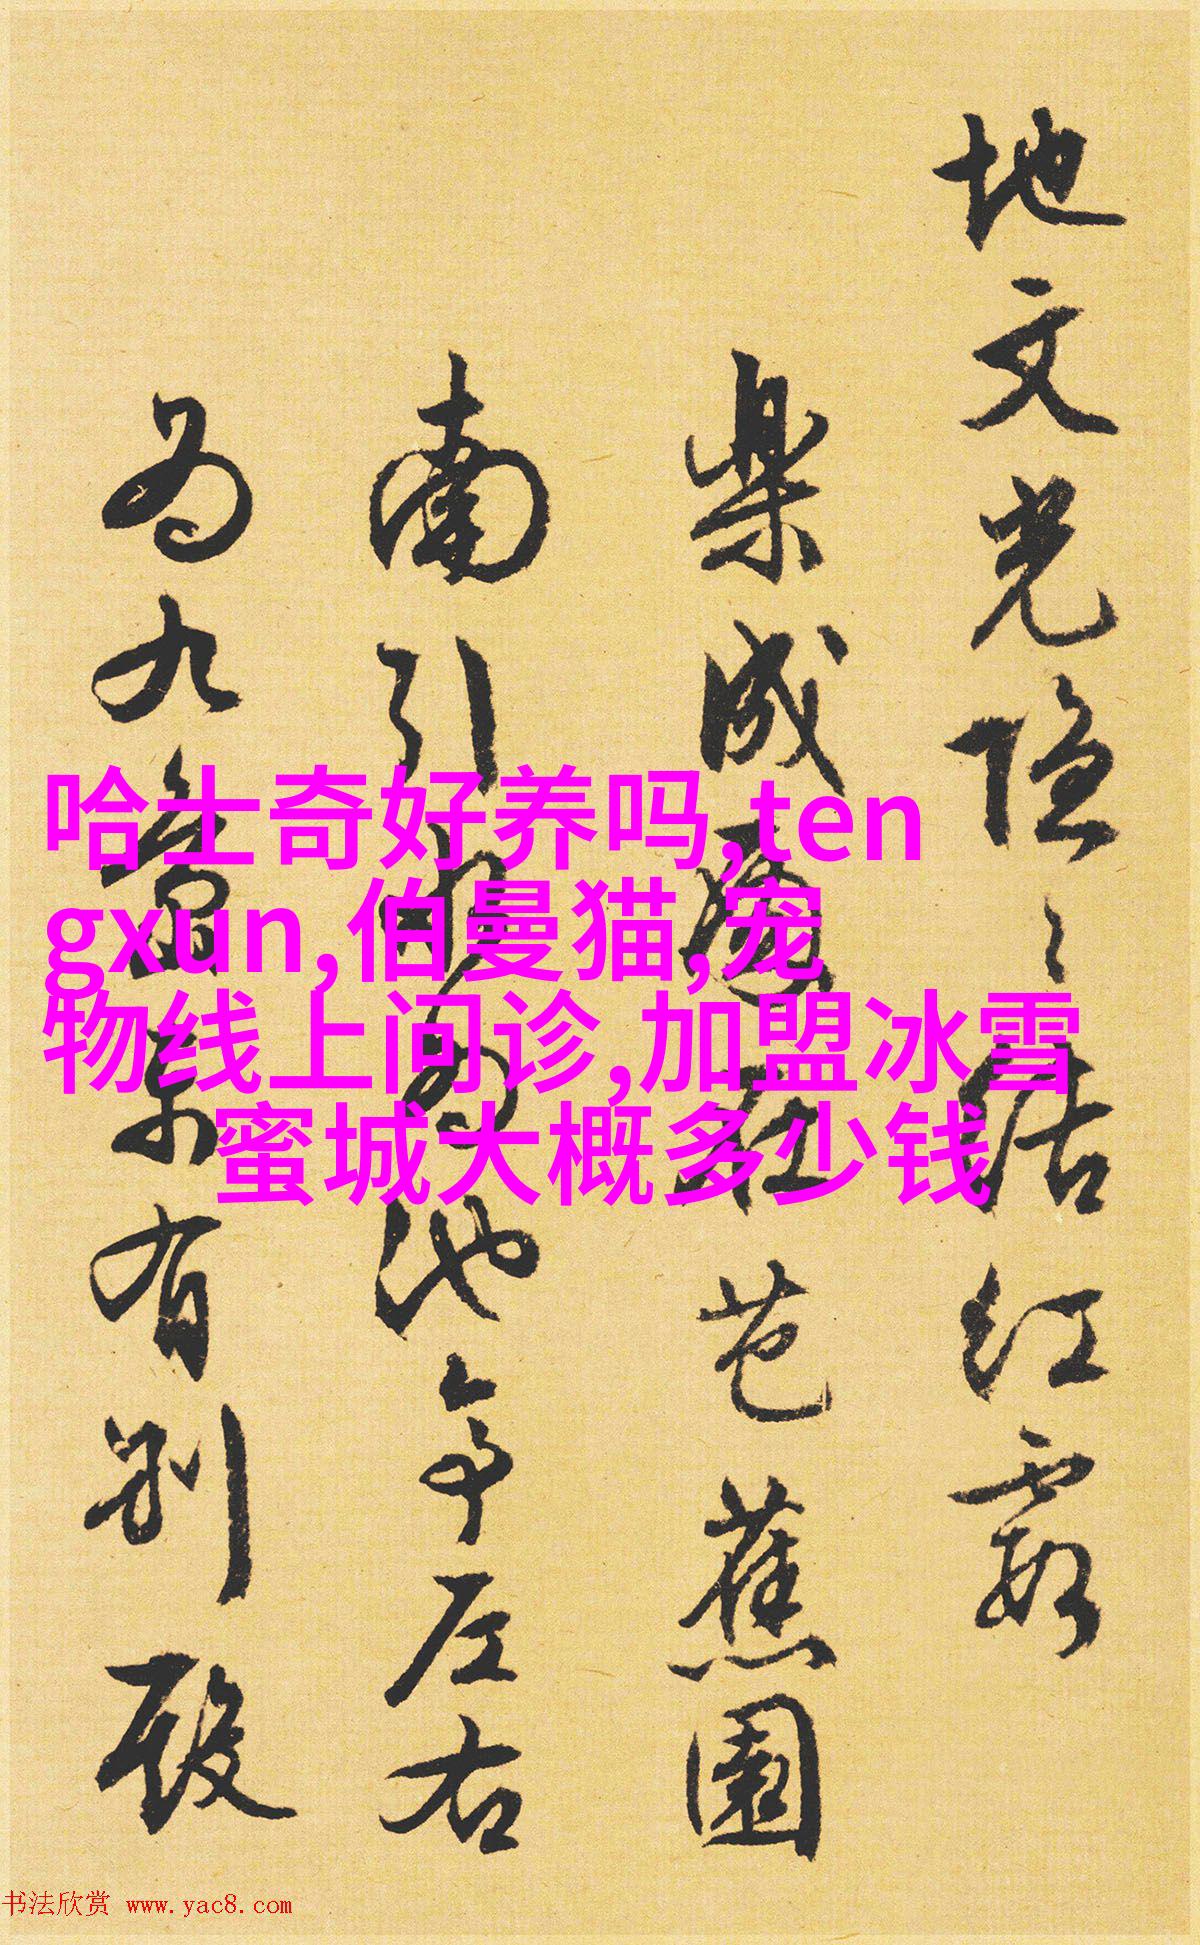 地文光隐〻居红霞
乐成
芭蕉園
南引
池亭左右
为九
有别殿
哈士奇好养吗,ten
gxun,伯曼猫,宠
物线上问诊,加盟冰雪
蜜城大概多少钱
书法欣赏 www.yac8.com